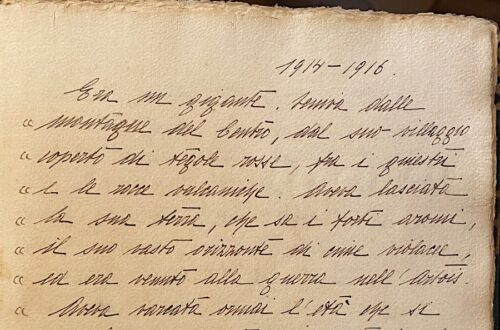 1914-1916.
Era un gigante. Veniva dalle
" montagne del Centro, dal suo villaggio
" coperto di tegole rosse, tra i
" e le rocce vulcaniche. Aveva lasciata
" la sua terra, che sa i forti aromi,
" il suo vasto orizzonte di cime violacee,
" ed era venuto alla guerra nell' Artois.
" Aveva varcata ormai l'età che si